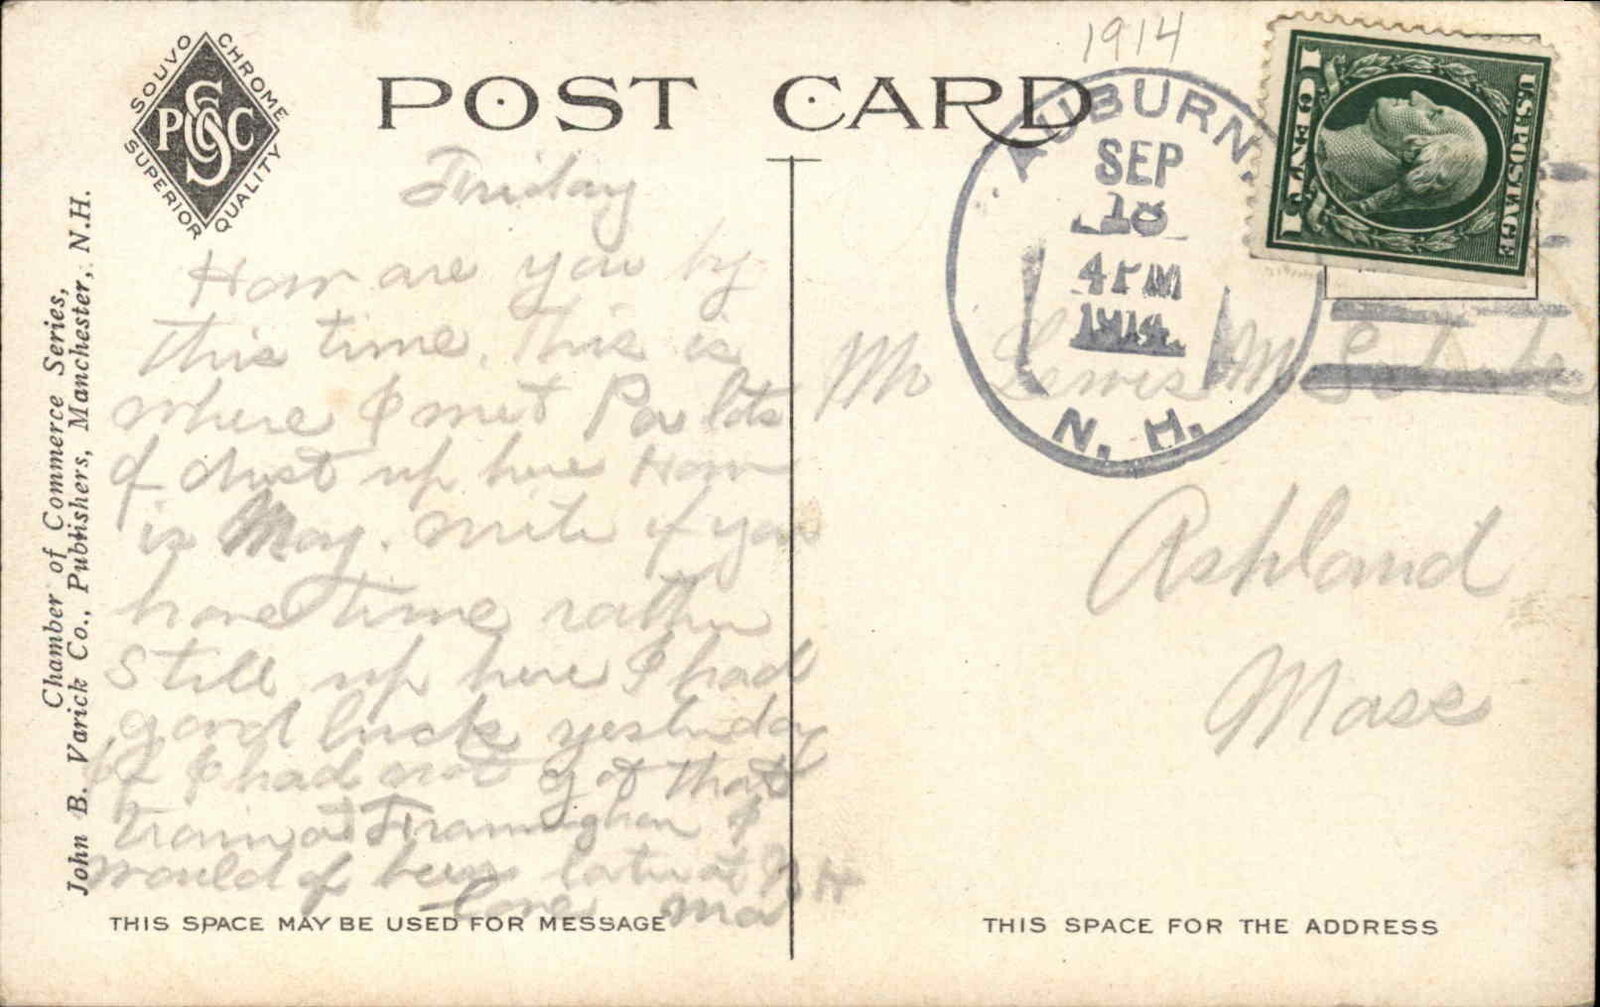 1914
POST CARD
SOUVO CHROME
P S C
SUPERIOR QUALITY
Chamber of Commerce Series,
John B. Varick Co., Publishers, Manchester, N.H.
AUBURN.
SEP
18
4 PM
1914
N. H.
U.S. POSTAGE
1 CENT 1
Friday
How are you by
this time. This is
where I met Pa lots
of dust up here How
is May. write if you
have time rather
Still up here I had
good luck yesterday
if I had not got that
train at Framingham I
would of been late at N H
Love Ma
Mr Lewis M
Ashland
Mass
THIS SPACE MAY BE USED FOR MESSAGE
THIS SPACE FOR THE ADDRESS